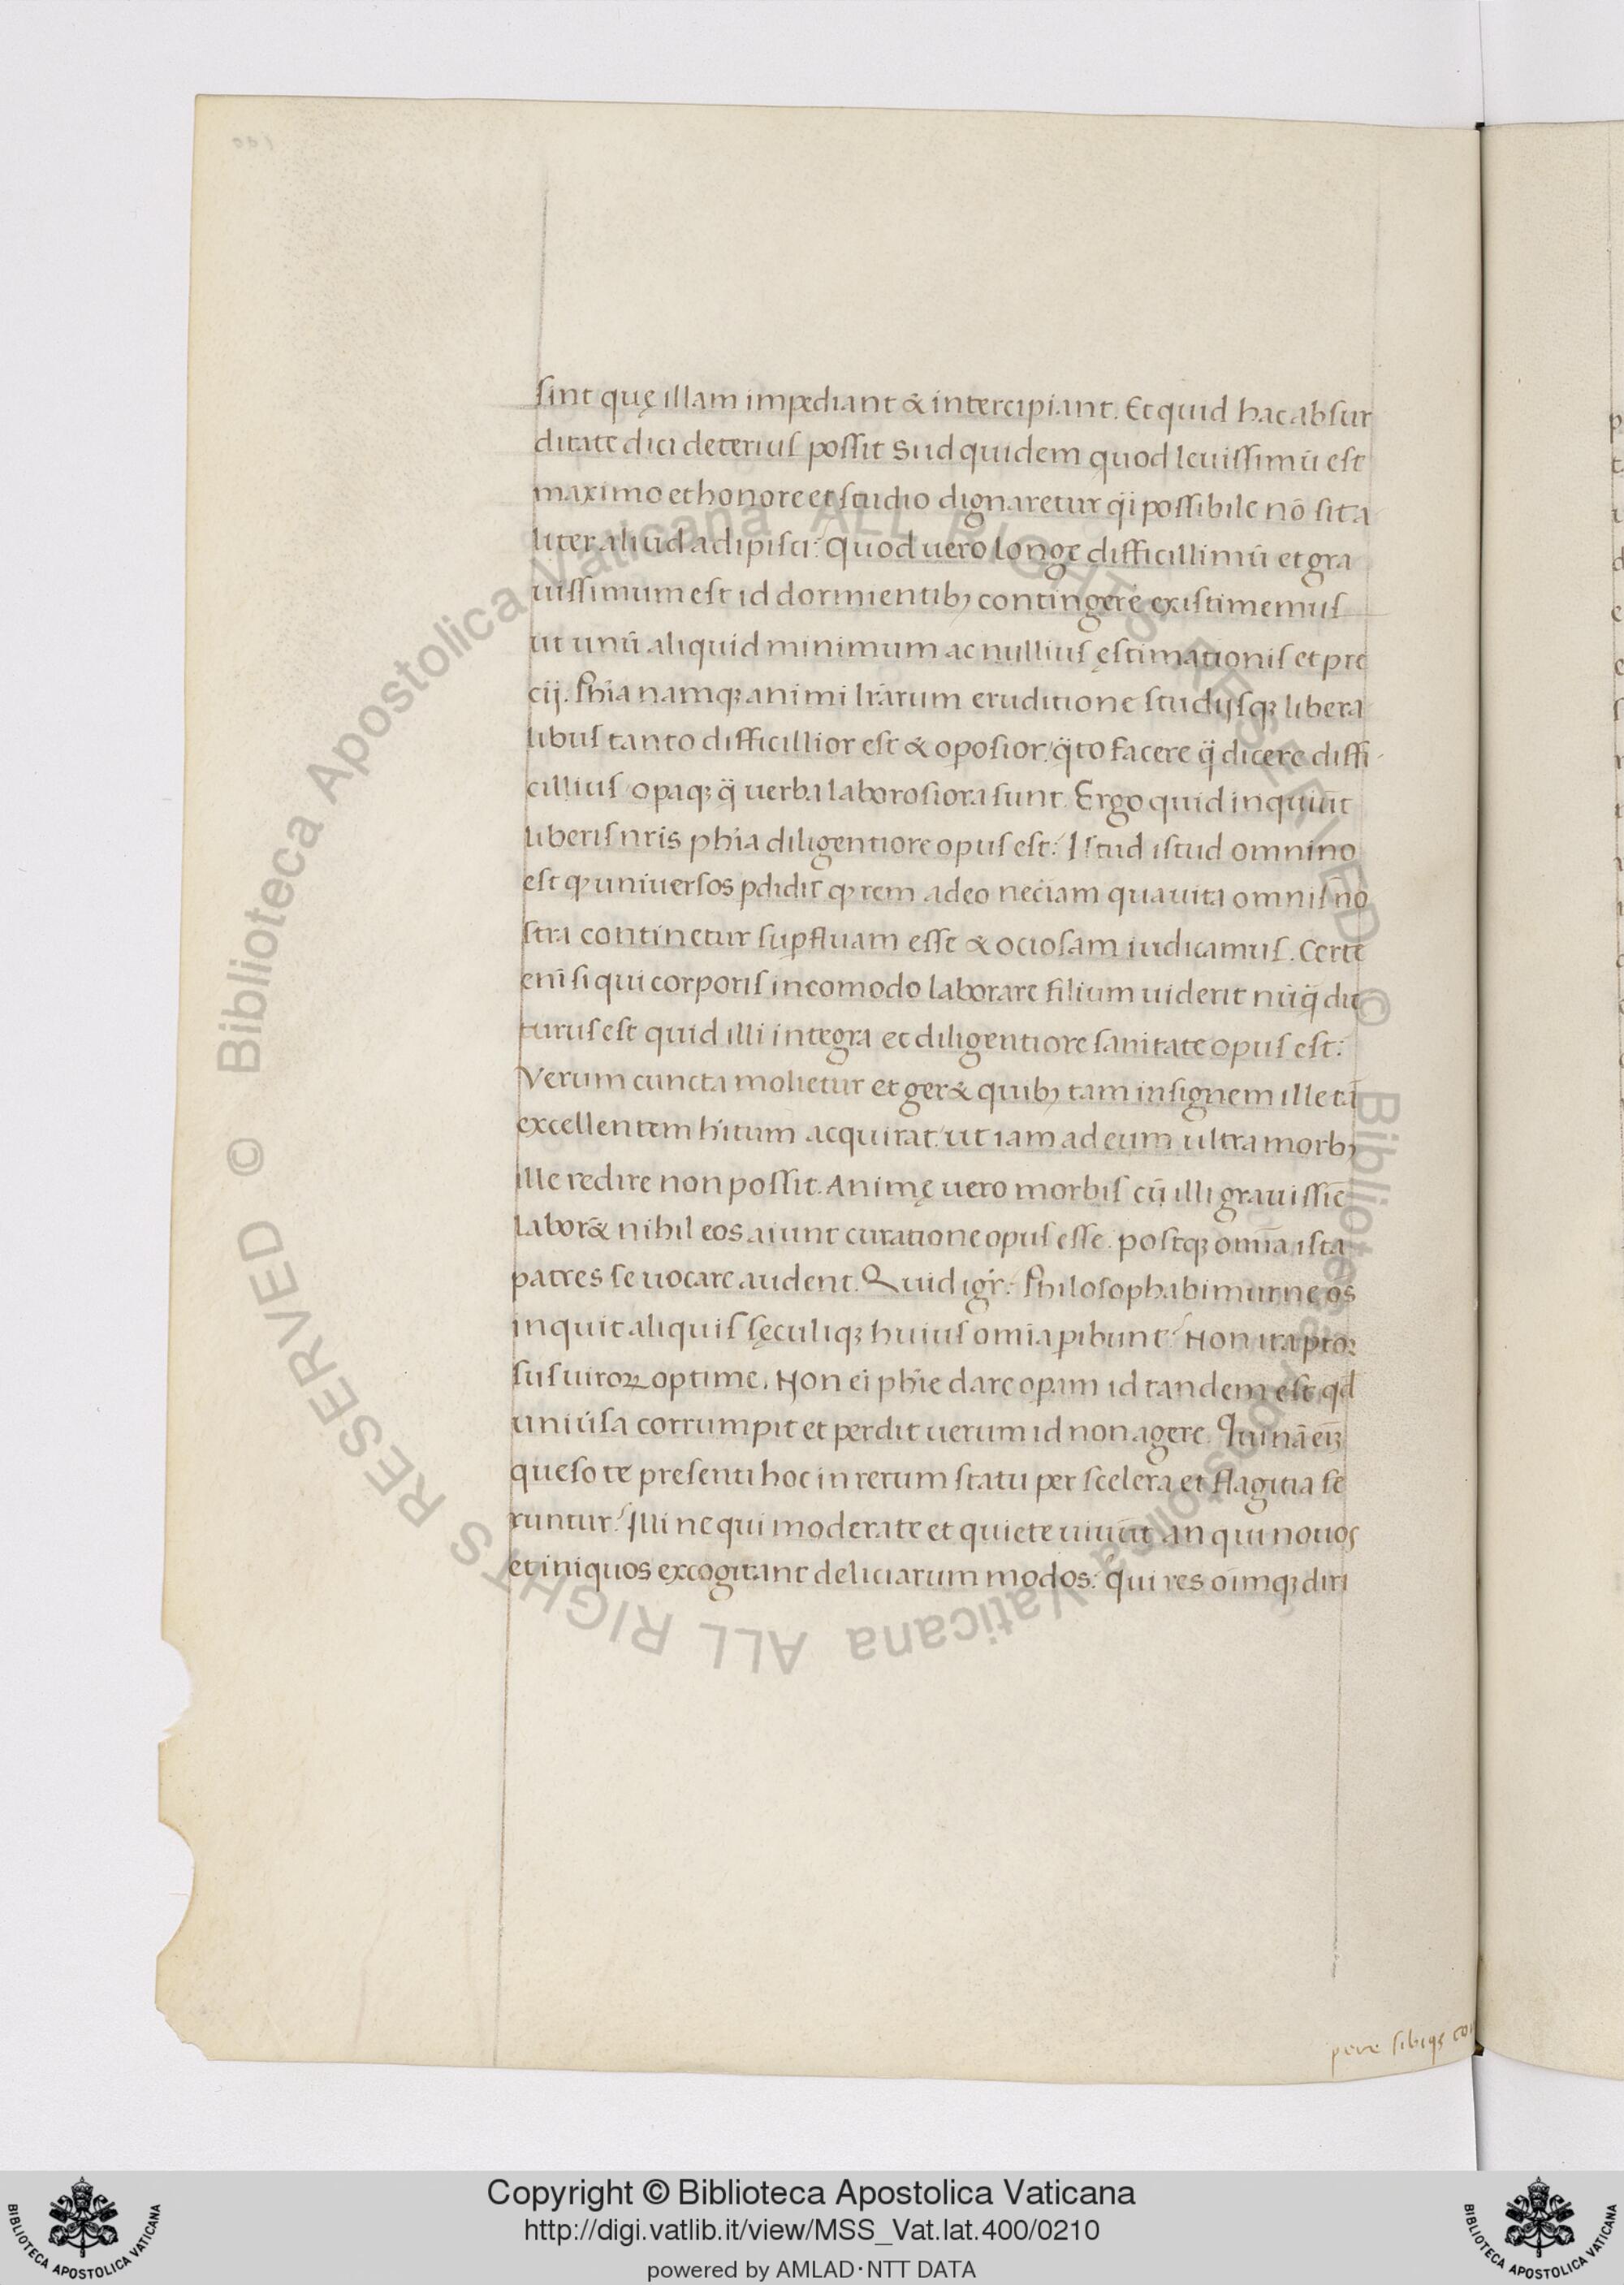 sint quę illam impediant & intercipiant. Et quid hac absur
ditate dici deterius possit siud quidem quod leuissimū est
maximo et honore et studio dignaretur q̈i possibile nō sit a
liter aliud adipisci: Quod uero longe difficillimū et gra
uissimum est id dormientibꝫ contingere existimemus
ut unū aliquid minimum ac nullius ęstimationis et pre
cij. Phīa namqꝫ animi lr̄arum eruditione studijsqꝫ libera
libus tanto difficillior est & oposior: q̈to facere q̈ dicere diffi
cillius opaqꝫ q̈ uerba laborosiora sunt. Ergo quid inquiūt
liberis nr̄is phīa diligentiore opus est: Istud istud omnino
est qꝫ uniuersos pdidit qꝫ rem adeo neciam qua uita omnis no
stra continetur supfluam esse & ociosam iudicamus. Certe
enī si qui corporis incomodo laborare filium uiderit nūq̈ dic
turus est quid illi integra et diligentiore sanitate opus est:
Verum cuncta molietur et ger& quibꝫ tam insignem ille tā
excellentem h̄itum acquirat: ut iam ad eum ultra morbꝫ
ille redire non possit. Animę uero morbis cū illi grauissie
labor& nihil eos aiunt curatione opus esse. postqꝫ omīa ista
patres se uocare audent. Quid igr̄: Philosophabimur ne os
inquit aliquis sęculiqꝫ huius omia pibunt: Non ita pror
sus uiroꝝ optime. Non ei phīe dare opam id tandem est qd
uniūsa corrumpit et perdit uerum id non agere. Qui nā eiꝫ
queso te presenti hoc in rerum statu per scelera et flagitia fe
runtur: Illi ne qui moderate et quiete uiuūt an qui nouos
et iniquos excogitant deliciarum modos: qui res oimqꝫ diri
pere sibiqꝫ con
Copyright © Biblioteca Apostolica Vaticana
http://digi.vatlib.it/view/MSS_Vat.lat.400/0210
powered by AMLAD·NTT DATA
BIBLIOTECA APOSTOLICA VATICANA
BIBLIOTECA APOSTOLICA VATICANA
© Biblioteca Apostolica Vaticana ALL RIGHTS RESERVED
© Biblioteca Apostolica Vaticana ALL RIGHTS RESERVED